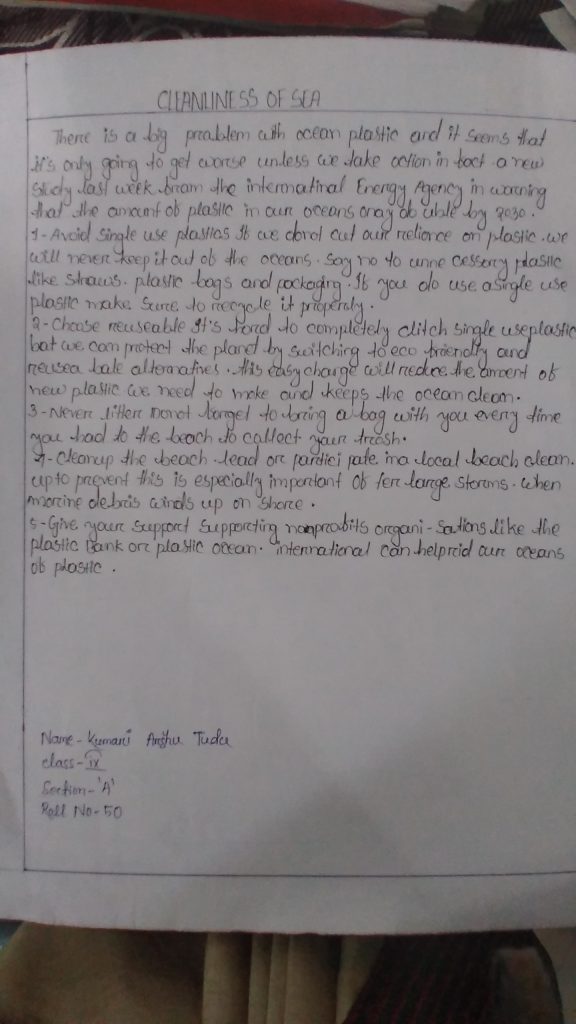 CLEANLINESS OF SEA
There is a big preablem with ocean plastic and it seems that
it's only going to get worse unless we take action in fact a new
Study last week fram the internatinal Energy Agency in warning
that the amount of plastic in our oceans may do uble by 2030.
1-Avoid single use plastics If we donot cut our reliance on plastic. we
will never keep it out of the oceans. Say no to unne cessary plastic
like straws. plastic bags and packaging. If you do use a single use
plastic make Sure to recycle it properaly.
2-Choose reuseable It's hard to completely ditch single useplastic
but we can protect the planet by switching to eco friendly and
reusea bale alternatives. this easy change will reduce the amoent of
new plastic we need to make and keeps the ocean clean.
3-Never litter Donot forget to bring a bag with you every time
you had to the beach to collect your trash.
4-Cleanup the beach lead or partici pate ina local beach clean.
up to prevent this is especially important of ter large storms. when
marine debris winds up on shore.
5-Give your support Supporting nonprobits organi-sations like the
plastic Bank or plastic ocean. international can help rid our oceans
of plastic.
Name-Kumari Anshu Tudu
class-IX
Section-'A'
Roll No-50